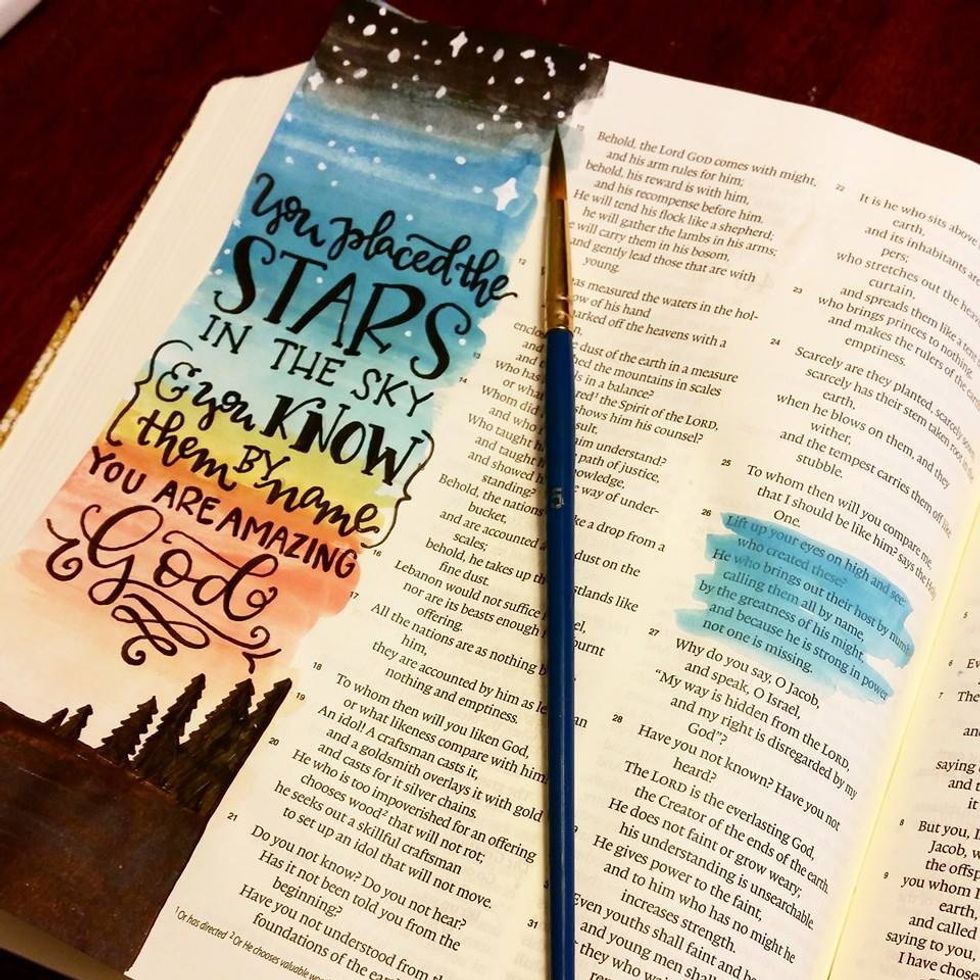 You placed the
STARS
IN THE SKY
& you KNOW
them BY name
YOU ARE AMAZING
God
Behold, the Lord GOD comes with might,
and his arm rules for him;
behold, his reward is with him,
and his recompense before him.
He will tend his flock like a shepherd;
he will gather the lambs in his arms;
will carry them in his bosom,
and gently lead those that are with
young.
12
has measured the waters in the hol-
of his hand
marked off the heavens with a
dust of the earth in a measure
the mountains in scales
in a balance?
13
Who has the Spirit of the LORD,
or what shows him his counsel?
14
Whom did
and who understand?
Who taught path of justice,
and taught knowledge,
and showed way of under-
standing?
Behold, the nations like a drop from a
bucket,
and are accounted dust on the
scales;
behold, he takes up the coastlands like
fine dust.
16
Lebanon would not suffice
nor are its beasts enough burnt
offering.
17
All the nations are as nothing
him,
they are accounted by him as
nothing and emptiness.
18
To whom then will you liken God,
or what likeness compare with him?
19
An idol! A craftsman casts it,
and a goldsmith overlays it with gold
and casts for it silver chains.
20
He who is too impoverished for an offering
chooses wood² that will not rot;
he seeks out a skillful craftsman
to set up an idol that will not move.
21
Do you not know? Do you not hear?
Has it not been told you from the
beginning?
Have you not understood from the
foundations of the
¹ Or has directed ² Or He chooses valuable
22
It is he who sits above
earth,
and its inhabitants
pers;
who stretches out the
curtain,
and spreads them like a
23
who brings princes to nothing,
and makes the rulers of the
emptiness.
24
Scarcely are they planted, scarcely
scarcely has their stem taken root
when he blows on them, and they
wither,
and the tempest carries them off like
stubble.
25
To whom then will you compare me,
that I should be like him? says the Holy
One.
26
Lift up your eyes on high and see:
who created these?
He who brings out their host by
calling them all by name,
by the greatness of his might,
and because he is strong in power
not one is missing.
27
Why do you say, O Jacob,
and speak, O Israel,
"My way is hidden from the LORD,
and my right is disregarded by my
God"?
28
Have you not known? Have you not
heard?
The LORD is the everlasting God,
the Creator of the ends of the earth.
He does not faint or grow weary;
his understanding is unsearchable.
He gives power to the faint,
and to him who has no might he
increases strength.
Even youths shall faint and be
31
and young men shall
they who
6
7
saying
and
it
8
But you,
Jacob,
the
9
you whom I
earth,
and called
saying to you
I have